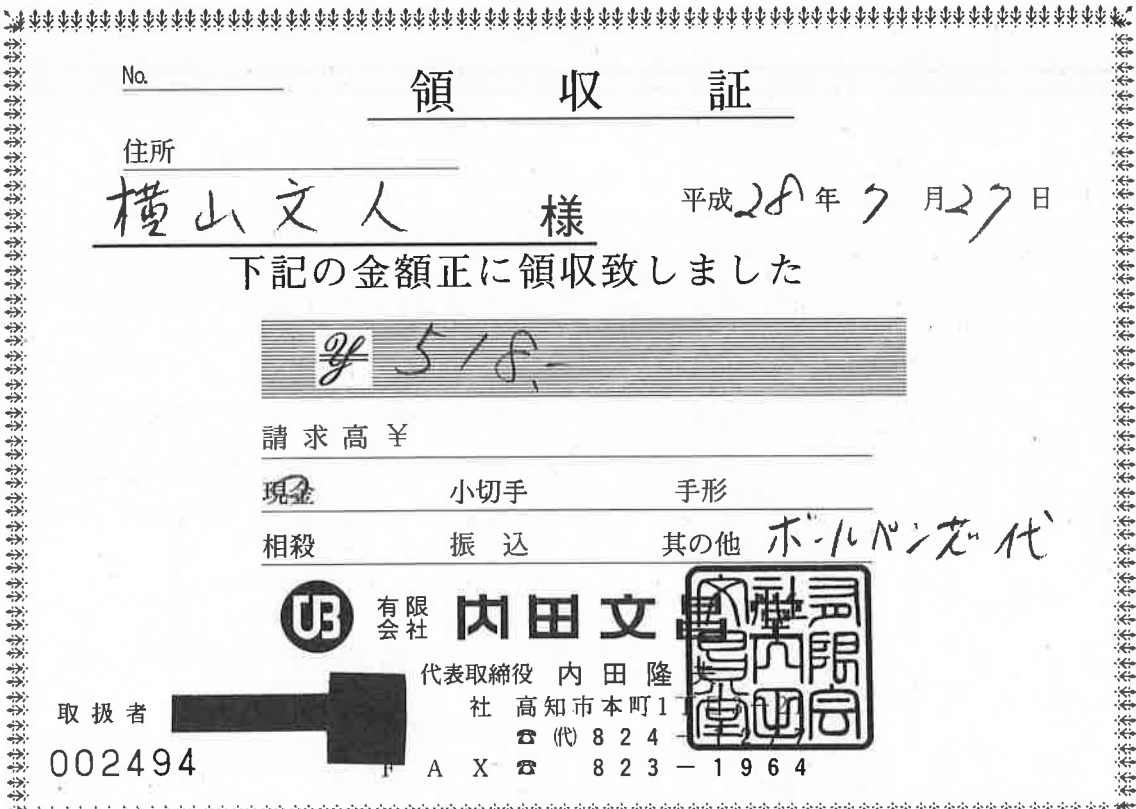 No.
領収証
住所
横山文人 様
平成28年7月27日
下記の金額正に領収致しました
¥ 518.-
請求高 ¥
現金 小切手 手形
相殺 振込 其の他 ボールペン芯代
UB 有限会社 内田文昌堂
代表取締役 内田隆
社 高知市本町1
☎ ㈹ 824-
取扱者
002494
FAX ☎ 823-1964
有限会社内田文昌堂